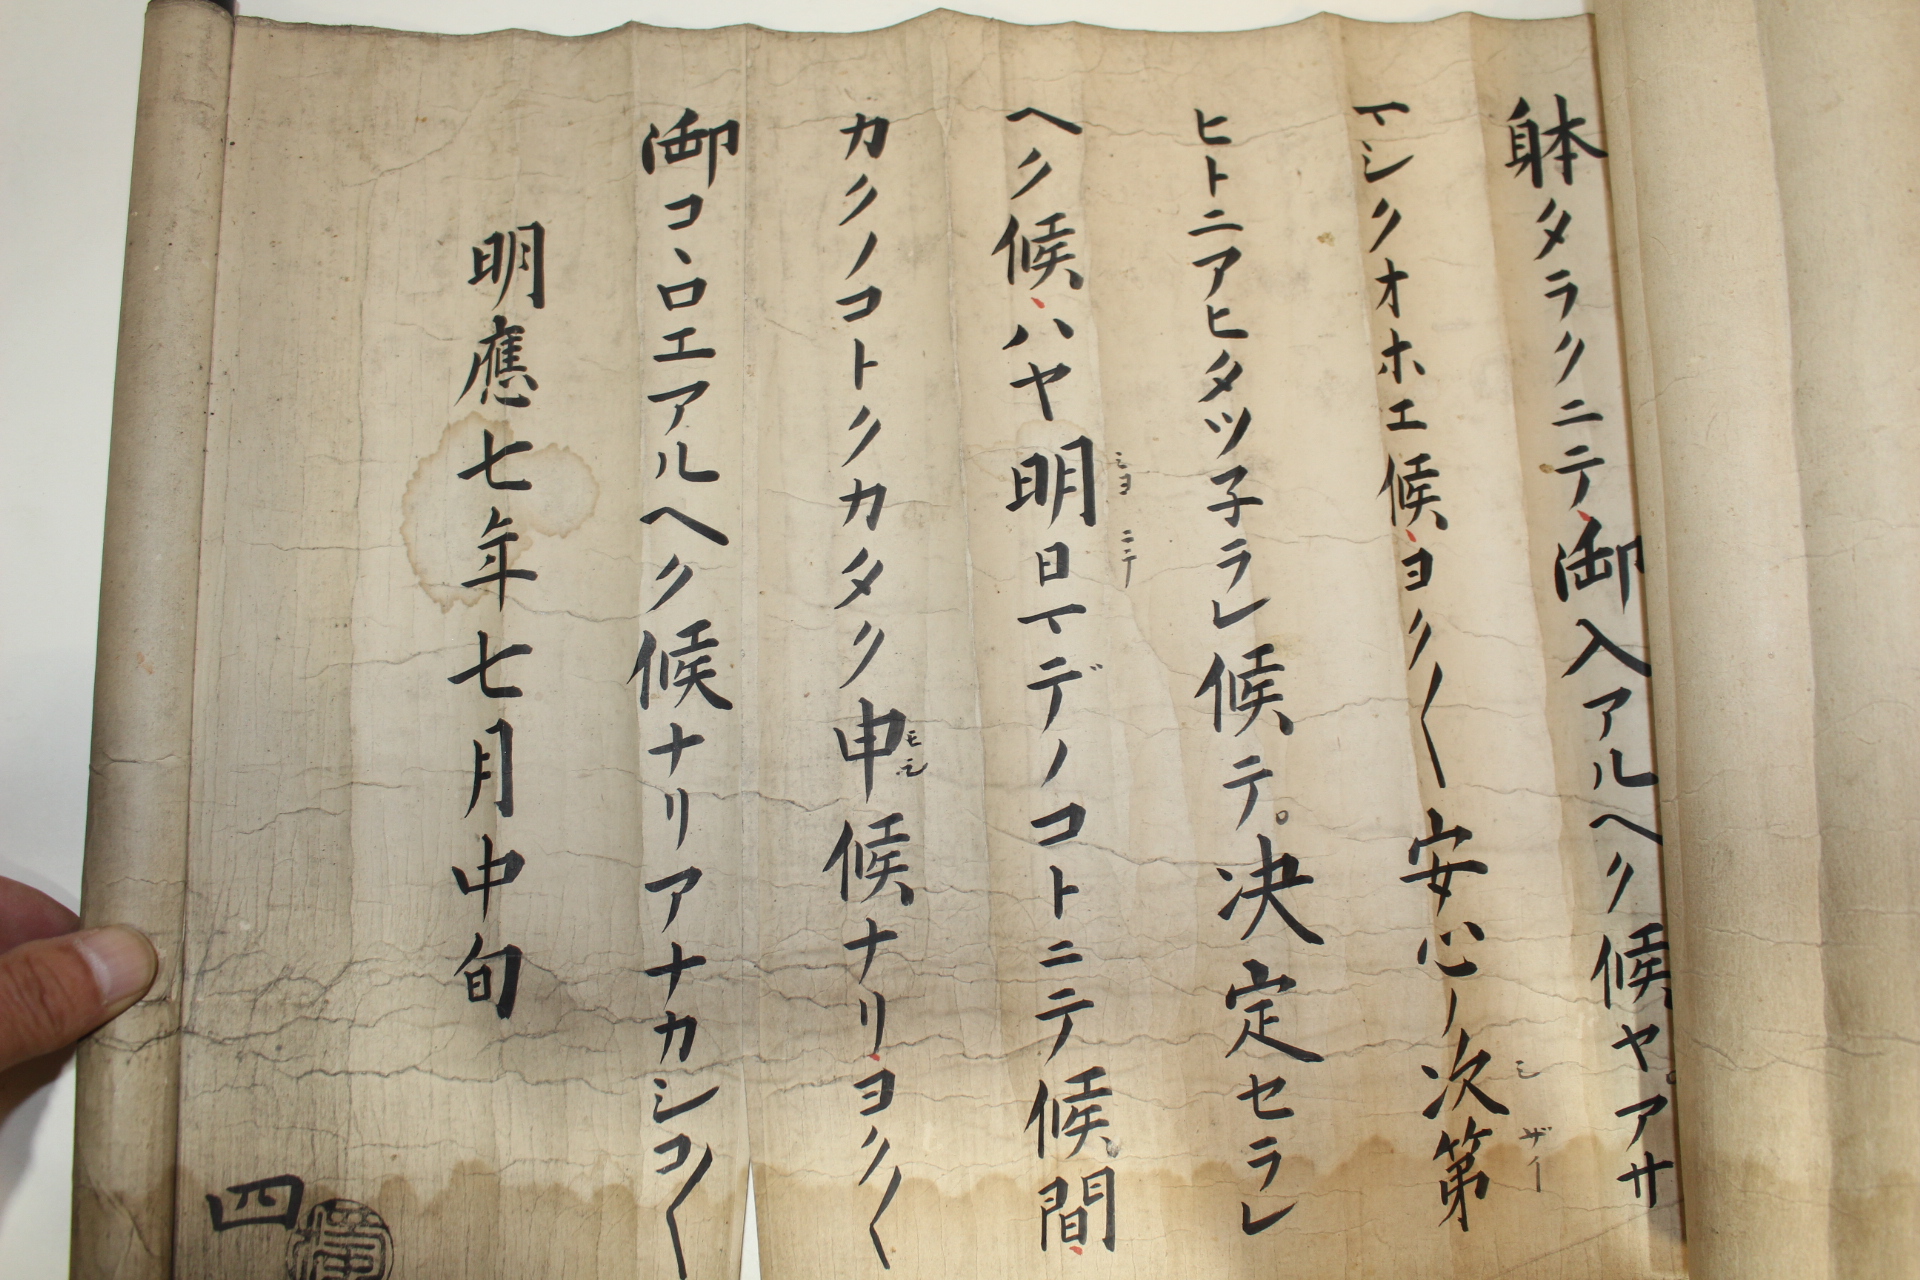 躰タラクニテ御入アルヘク候ヤアサ
マシクオホエ候ヨク〱安心ノ次第
シ ザイ
ヒトニアヒタツ子ラレ候テ。决定セラレ
ヘク候ハヤ明日マデノコトニテ候間
ミヨ ニチ
カクノコトクカタク申候ナリヨク〱
モシ
御コヽロエアルヘク候ナリアナカシコ〱
明應七年七月中旬
四